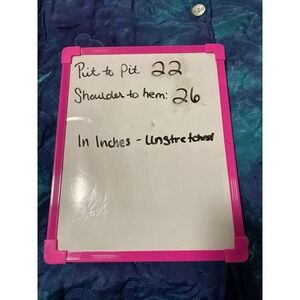 Pit to Pit 22
Shoulder to hem: 26
In Inches - Unstretched